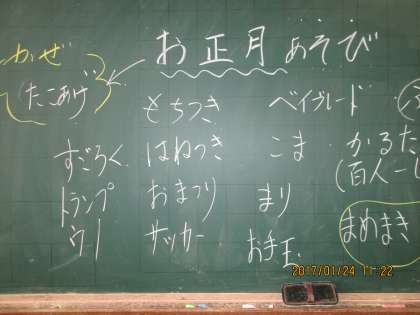 お正月あそび
かぜ
(たこあげ)
もちつき
ベイブレード
すごろく
はねつき
こま
かるた
(百人一
トランプ
おまつり
まり
サッカー
お手玉
まめまき
2017/01/24 11:22